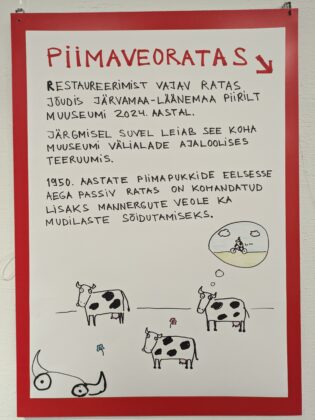 PIIMAVEORATAS
RESTAUREERIMIST VAJAV RATAS
JÕUDIS JÄRVAMAA-LÄÄNEMAA PIIRILT
MUUSEUMI 2024. AASTAL.
JÄRGMISEL SUVEL LEIAB SEE KOHA
MUUSEUMI VÄLIALADE AJALOOLISES
TEERUUMIS.
1950. AASTATE PIIMAPUKKIDE EELSESSE
AEGA PASSIV RATAS ON KOHANDATUD
LISAKS MANNERGUTE VEOLE KA
MUDILASTE SÕIDUTAMISEKS.